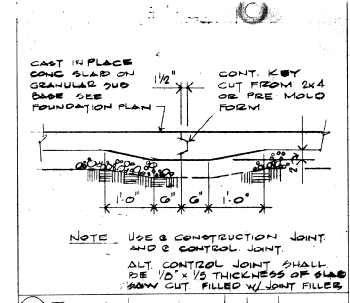 CAST IN PLACE
CONC SLAB ON
GRANULAR SUB
BASE SEE
FOUNDATION PLAN
1 1/2"
CONT. KEY
CUT FROM 2x4
OR PRE MOLD
FORM
2"
1'-0"
6"
6"
1'-0"
NOTE USE @ CONSTRUCTION JOINT
AND @ CONTROL JOINT.
ALT. CONTROL JOINT SHALL
BE 1/8" x 1/5 THICKNESS OF SLAB
SAW CUT FILLED W/ JOINT FILLER